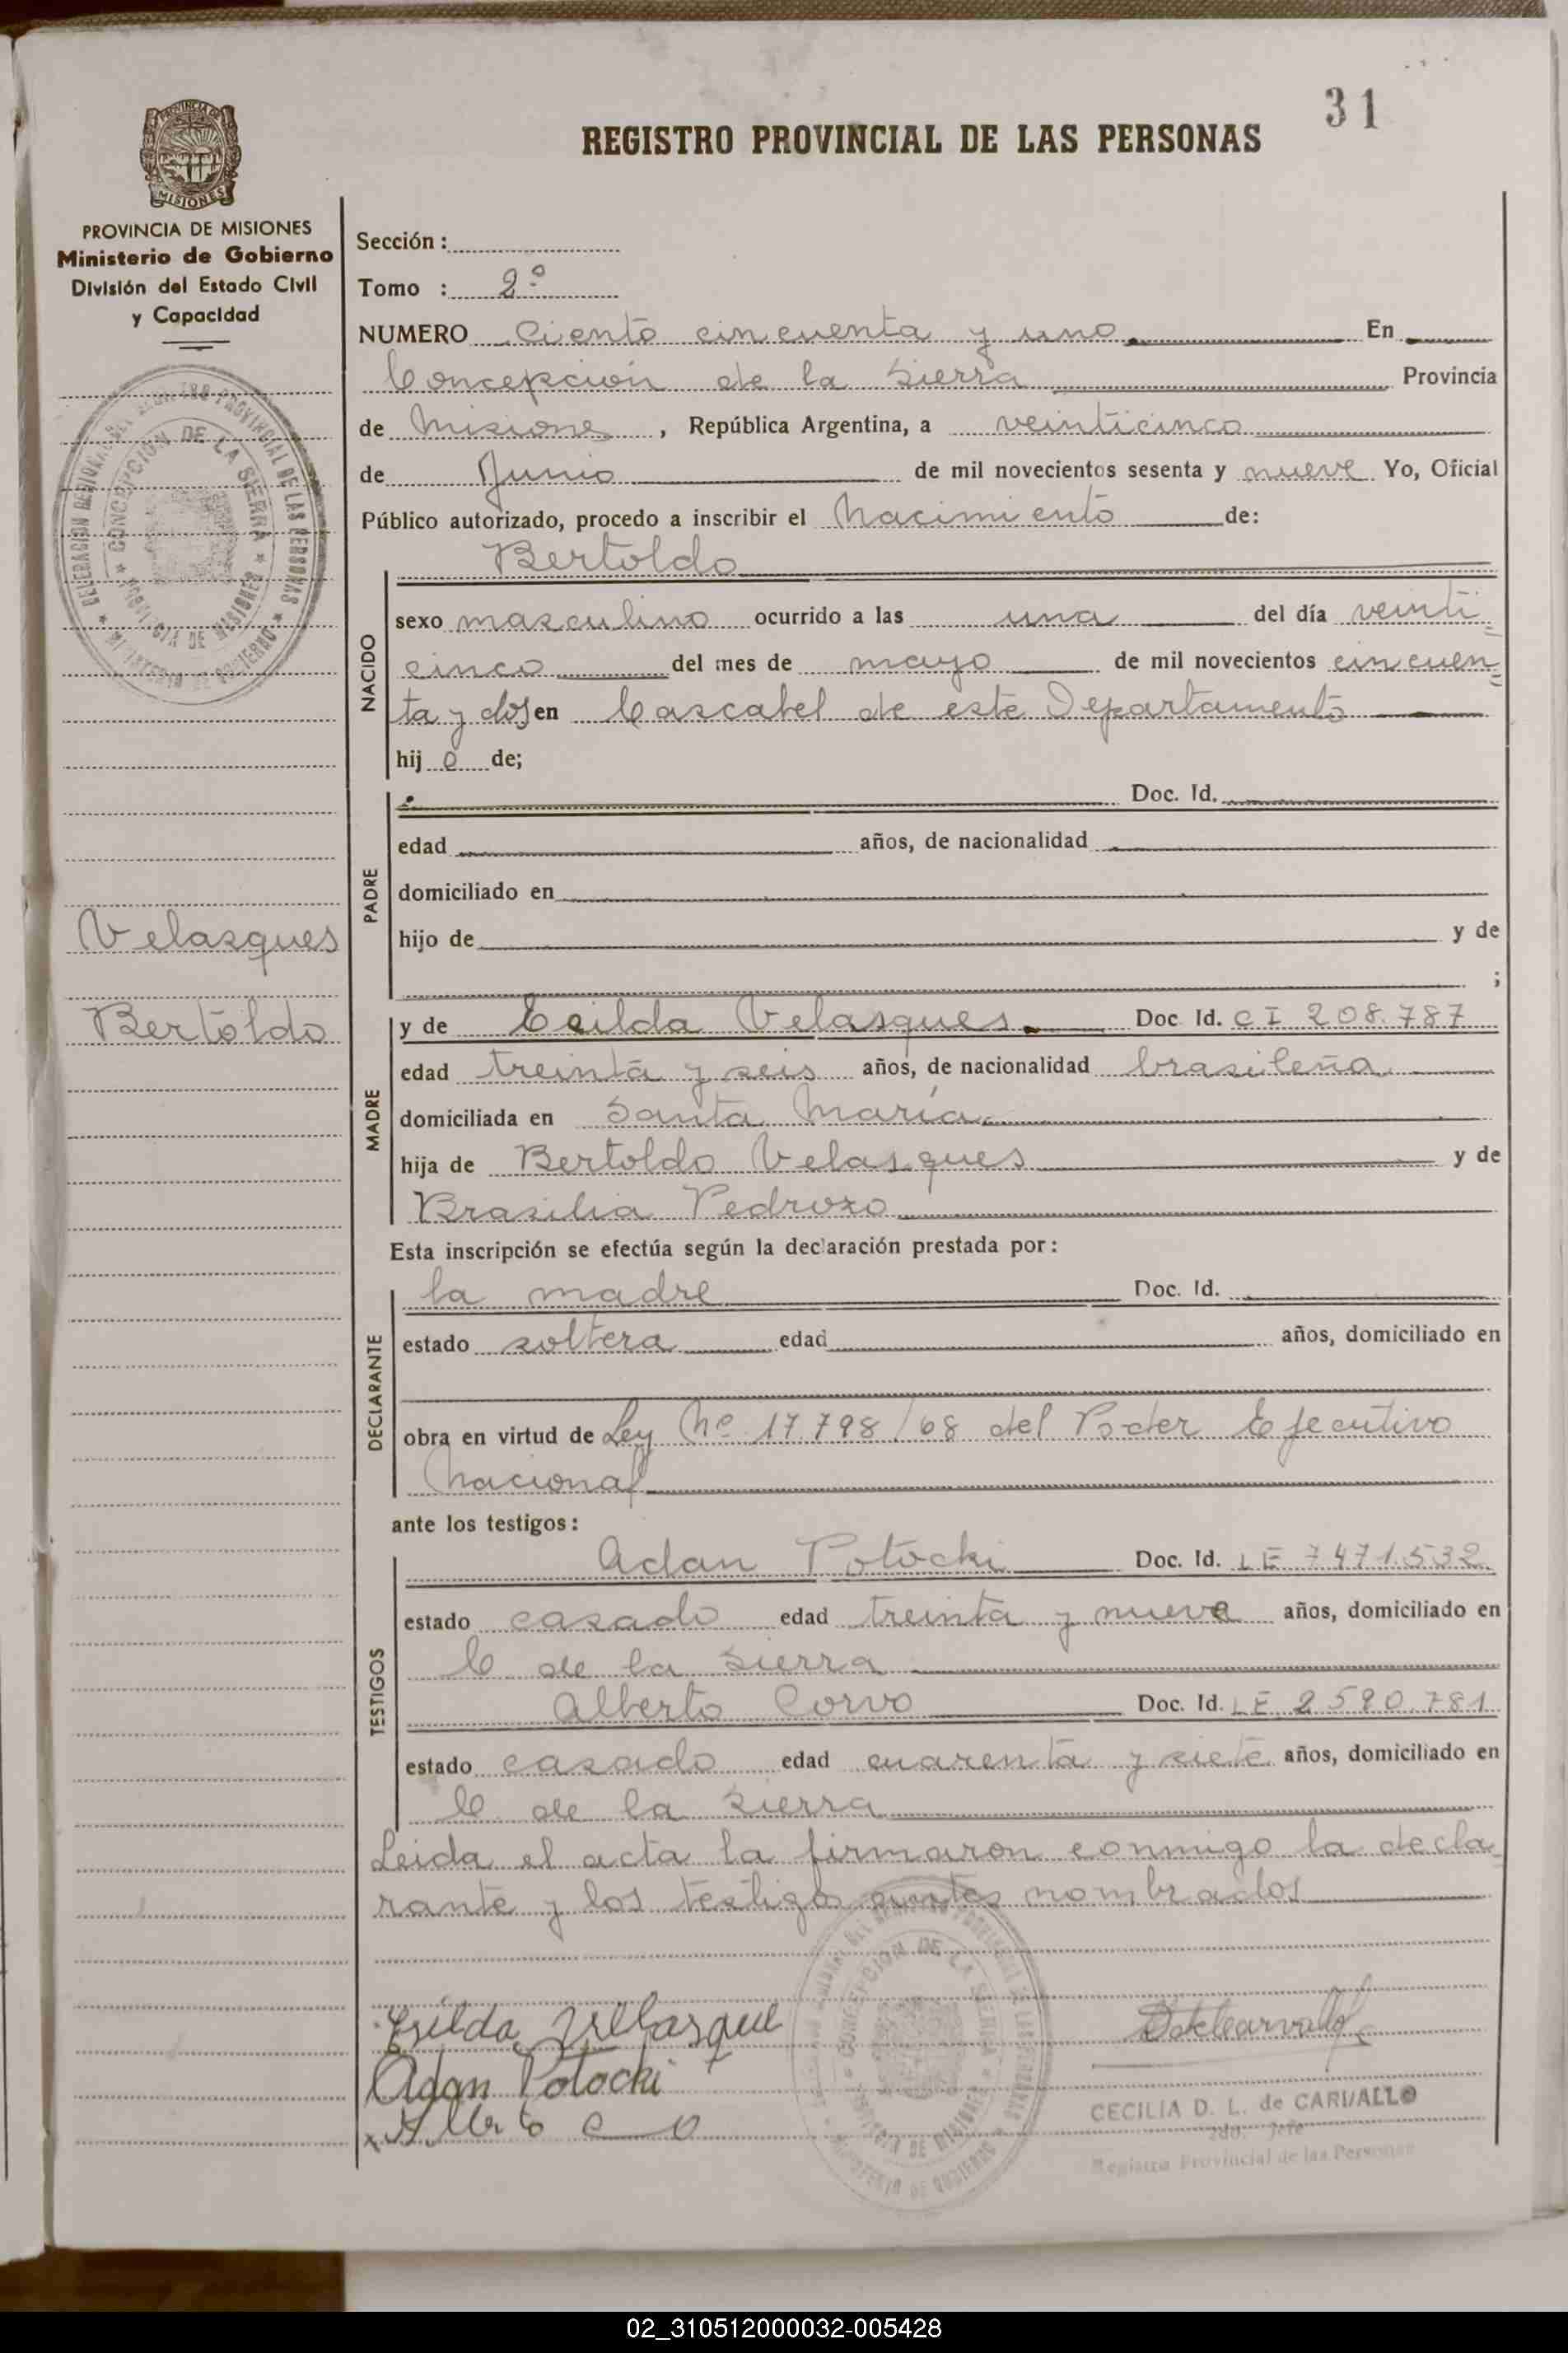 31
REGISTRO PROVINCIAL DE LAS PERSONAS
PROVINCIA DE MISIONES
Ministerio de Gobierno
División del Estado Civil
y Capacidad
Sección :
Tomo : 2º
NUMERO Ciento cincuenta y uno En
Concepción de la Sierra Provincia
de Misiones , República Argentina, a veinticinco
de Junio de mil novecientos sesenta y nueve Yo, Oficial
Público autorizado, procedo a inscribir el Nacimiento de:
Bertoldo
NACIDO
sexo masculino ocurrido a las una del día veinti
cinco del mes de mayo de mil novecientos cincuen
ta y dos en Cascatel de este Departamento
hij o de;
PADRE
Doc. Id.
edad años, de nacionalidad
domiciliado en
hijo de y de
;
Velasques
Bertoldo
MADRE
y de Ecilda Velasques Doc Id. CI 208.787
edad treinta y seis años, de nacionalidad brasileña
domiciliada en Santa María
hija de Bertoldo Velasques y de
Brasilia Pedrozo
Esta inscripción se efectúa según la declaración prestada por:
DECLARANTE
la madre Doc. Id.
estado soltera edad años, domiciliado en
obra en virtud de Ley Nº 17.798/68 del Poder Ejecutivo
Nacional
ante los testigos:
TESTIGOS
Adan Potocki Doc. Id. LE 7471.532
estado casado edad treinta y nueve años, domiciliado en
C de la Sierra
Alberto Corvo Doc. Id. LE 2590.781
estado casado edad cuarenta y siete años, domiciliado en
C de la Sierra
Leida el acta la firmaron conmigo la decla
rante y los testigos antes nombrados
DELEGACION REGIONAL DEL REGISTRO PROVINCIAL DE LAS PERSONAS
CONCEPCION DE LA SIERRA
PROVINCIA DE MISIONES
MINISTERIO DE GOBIERNO
Adan Potocki
CECILIA D. L. de CARVALLO
2do. Jefe
Registro Provincial de las Personas
02_310512000032-005428